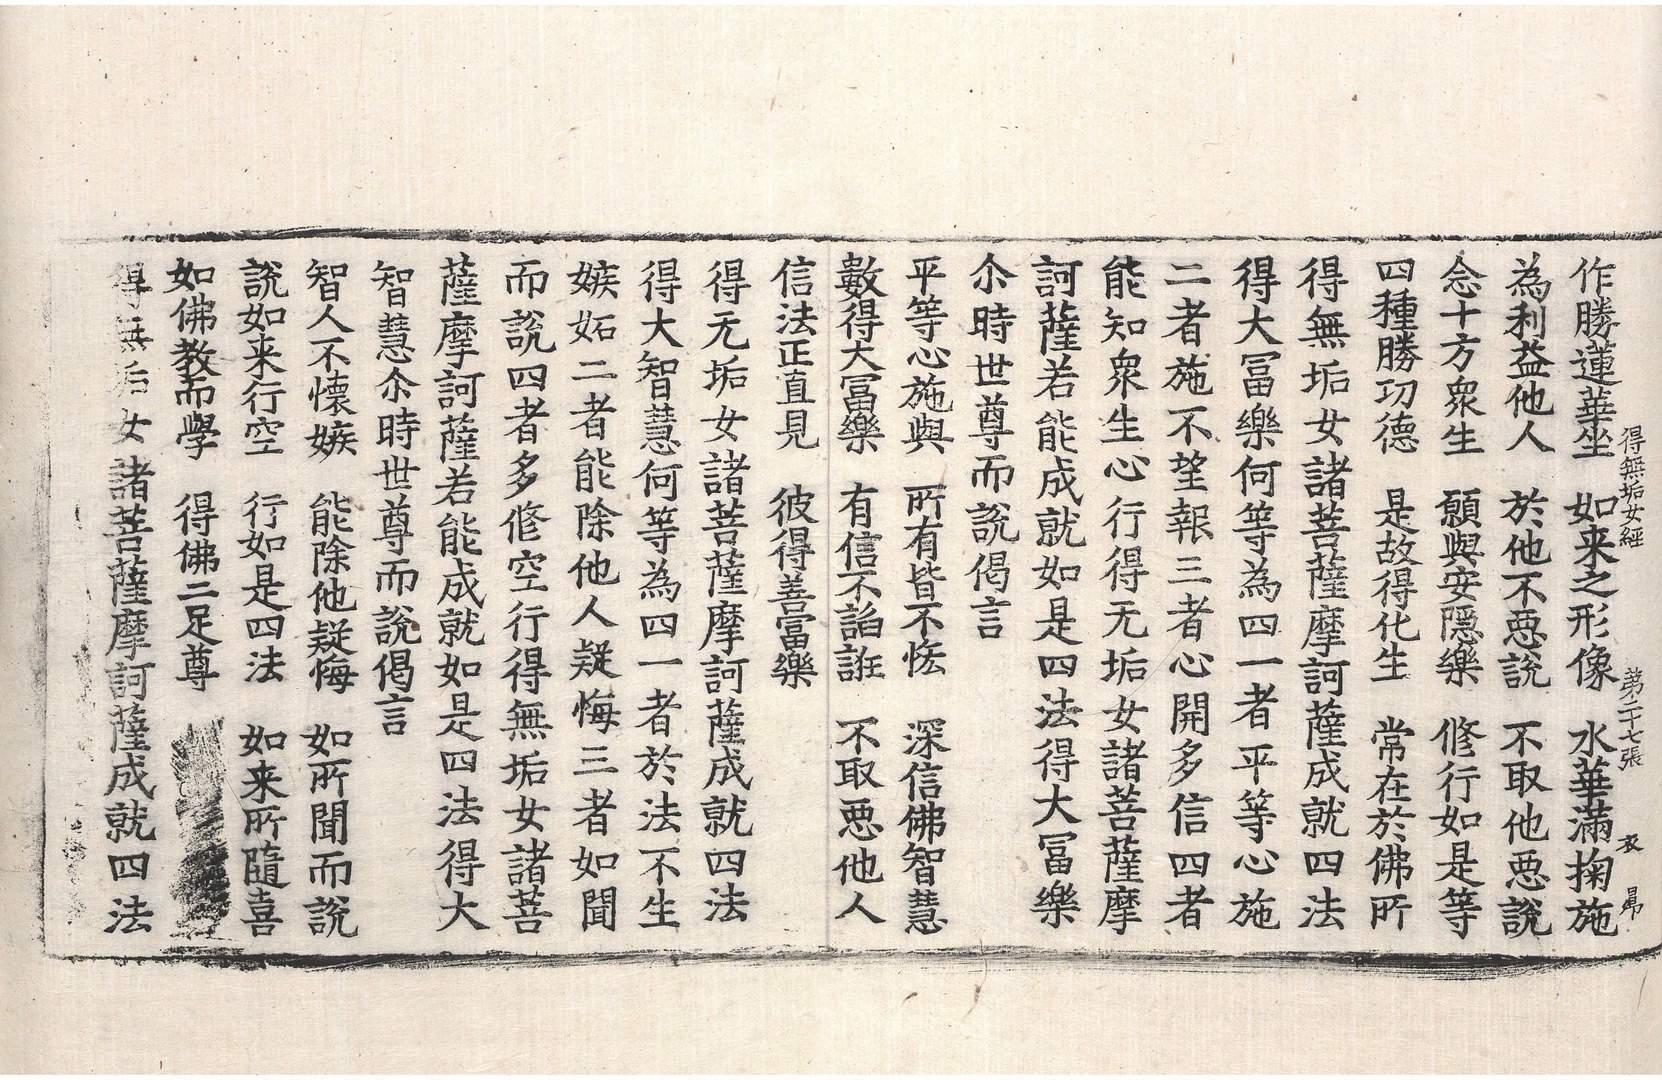 得無垢女經　第二十七張　衣　昴
作勝蓮華坐　如来之形像　水華滿掬施
為利益他人　於他不惡說　不取他惡說
念十方衆生　願與安隱樂　修行如是等
四種勝功德　是故得化生　常在於佛所
得無垢女諸菩薩摩訶薩成就四法
得大冨樂何等為四一者平等心施
二者施不望報三者心開多信四者
能知衆生心行得无垢女諸菩薩摩
訶薩若能成就如是四法得大冨樂
尒時世尊而說偈言
平等心施與　所有皆不悋　深信佛智慧
數得大冨樂　有信不諂誑　不取惡他人
信法正直見　彼得善富樂
得无垢女諸菩薩摩訶薩成就四法
得大智慧何等為四一者於法不生
嫉妬二者能除他人疑悔三者如聞
而說四者多修空行得無垢女諸菩
薩摩訶薩若能成就如是四法得大
智慧尒時世尊而說偈言
智人不懷嫉　能除他疑悔　如所聞而說
說如来行空　行如是四法　如来所隨喜
如佛教而學　得佛二足尊
得無垢女諸菩薩摩訶薩成就四法